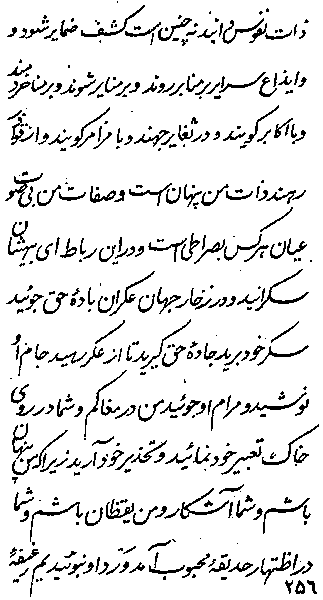 ذات نفوس دانید نه چنین است کشف ضمایر شود و
و ایذاع سرایر بر منابر روند و بر منایر شوند و بر مناخر دمند
و با اکابر گویند و در ثغایر جهند و با مزامر گویند و از
رهند ذات من پنهان است و صفات من بی صوت
عیان هر کس بصراطی است و در این رباط ای بیهشان
سکرانید و در زخار جهان عکران باده حق جوئید
سکر خود برید جاده حق گیرید تا از عکر رهید جام او
نوشید و مرام او جوئید من در مغاکم و شما در روی
خاک تعبیر خود نمائید و تحذیر خود آرید زیرا که من پنهان
باشم و شما آشکار و من یقظان باشم و شما
در اظتهار حدیقهٔ محبوب آمد و ورد او نبوئیدیم رغیفهٔ
۲۵۶